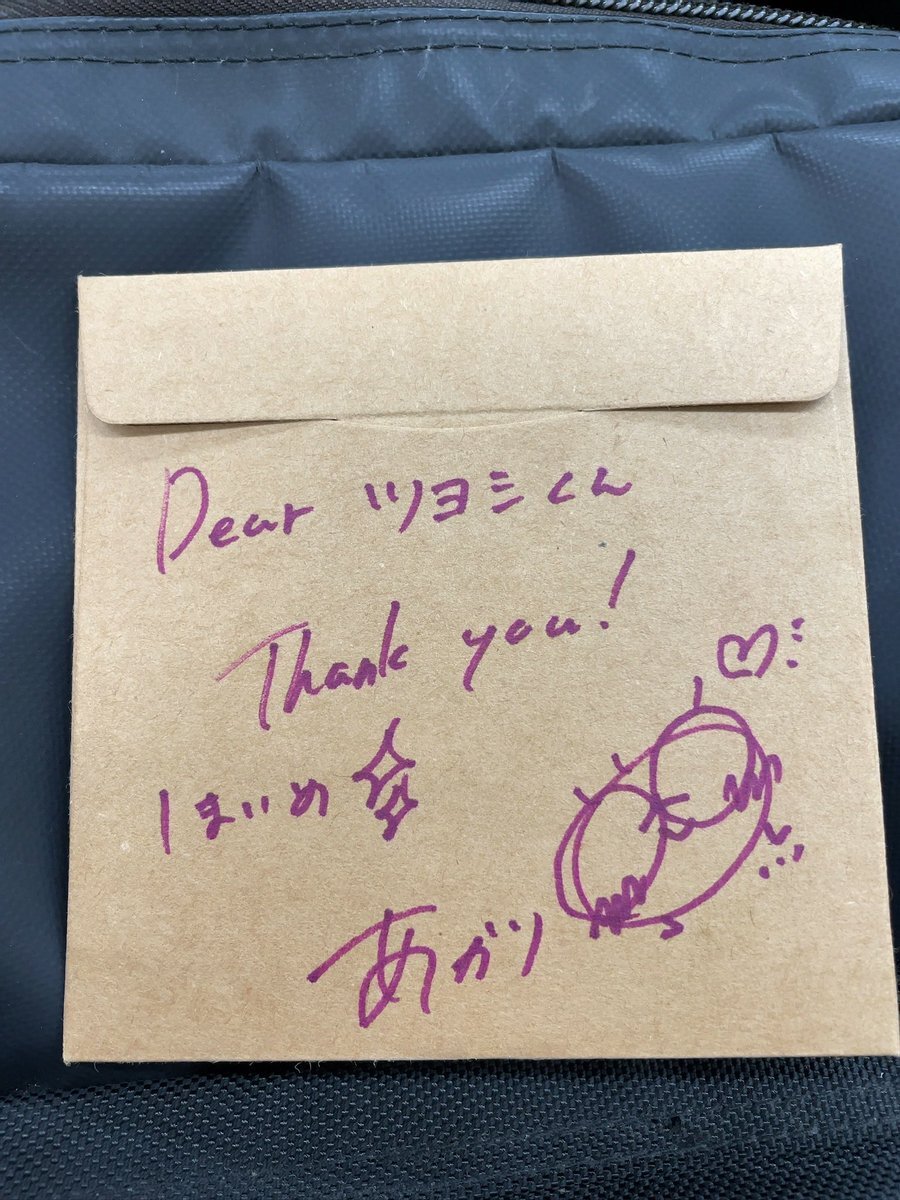 Dear ツヨミくん
Thank you!
1まいめ
あかり